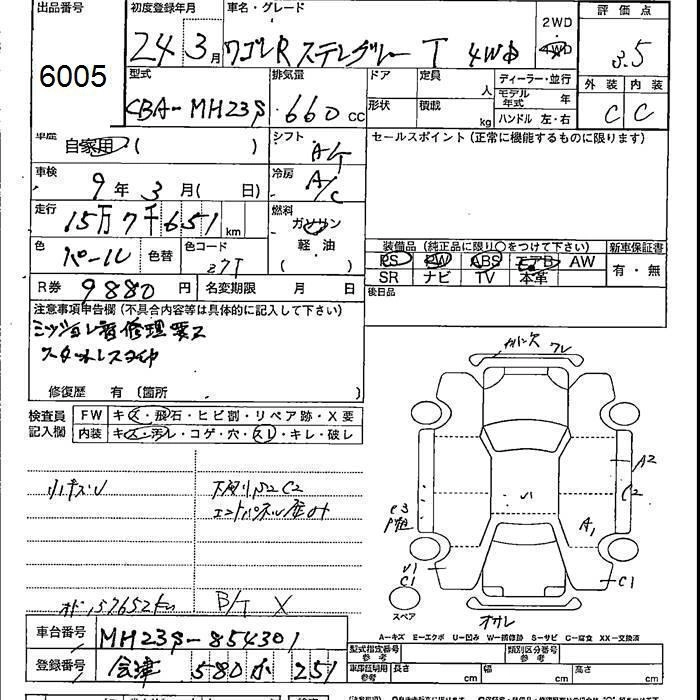 出品番号 初度登録年月 車名・グレード 2WD 評価点
6005 24 3月 ワゴンR スティングレー T 4WD 4WD 3.5
型式 排気量 ドア 定員 人 ディーラー・並行 外装 内装
CBA-MH23S 660 CC 形状 積載 kg モデル年式 年 C C
ハンドル 左・右
車歴 自家用( ) シフト AT セールスポイント(正常に機能するものに限ります)
車検 9年3月( 日) 冷房 A/C
走行 15万7千651km 燃料 ガソリン
軽油
( )
色 パール 色替 色コード Z7T
装備品(純正品に限り○をつけて下さい) 新車保証書
PS PW ABS エアB AW 有・無
SR ナビ TV 本革
R券 9880円 名変期限 月 日 後日品
注意事項申告欄(不具合内容等は具体的に記入して下さい)
ミッション 修理要ス
スタットレスタイヤ
修復歴 有〔箇所 〕
検査員記入欄 FW キズ・飛石・ヒビ割・リペア跡・X要
内装 キズ・汚レ・コゲ・穴・スレ・キレ・破レ
ガリ欠 ワレ
A2
C2
A1
C1
小キズU 下廻りS2C2
エンドパネル歪み
C3
U1
C1
スペア
オサレ
オド157652km B/T X
A-キズ E-エクボ U-凹み W-補修跡 S-サビ C-腐食 XX-交換済
車台番号 MH23S-854301
型式指定番号 参考 類別区分番号 参考
登録番号 会津 580 か 251
車庫証明用 参考 長さ cm 幅 cm 高さ cm